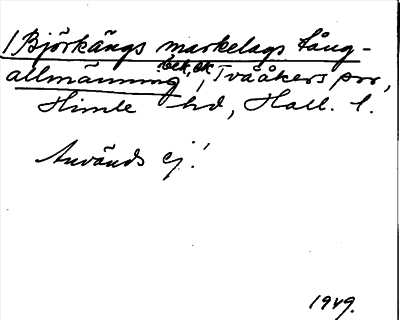 1 Björkängs markelags tång-
allmänning, Tvååkers sn,
Himle hd, Hall. l.
Används ej!
1949.